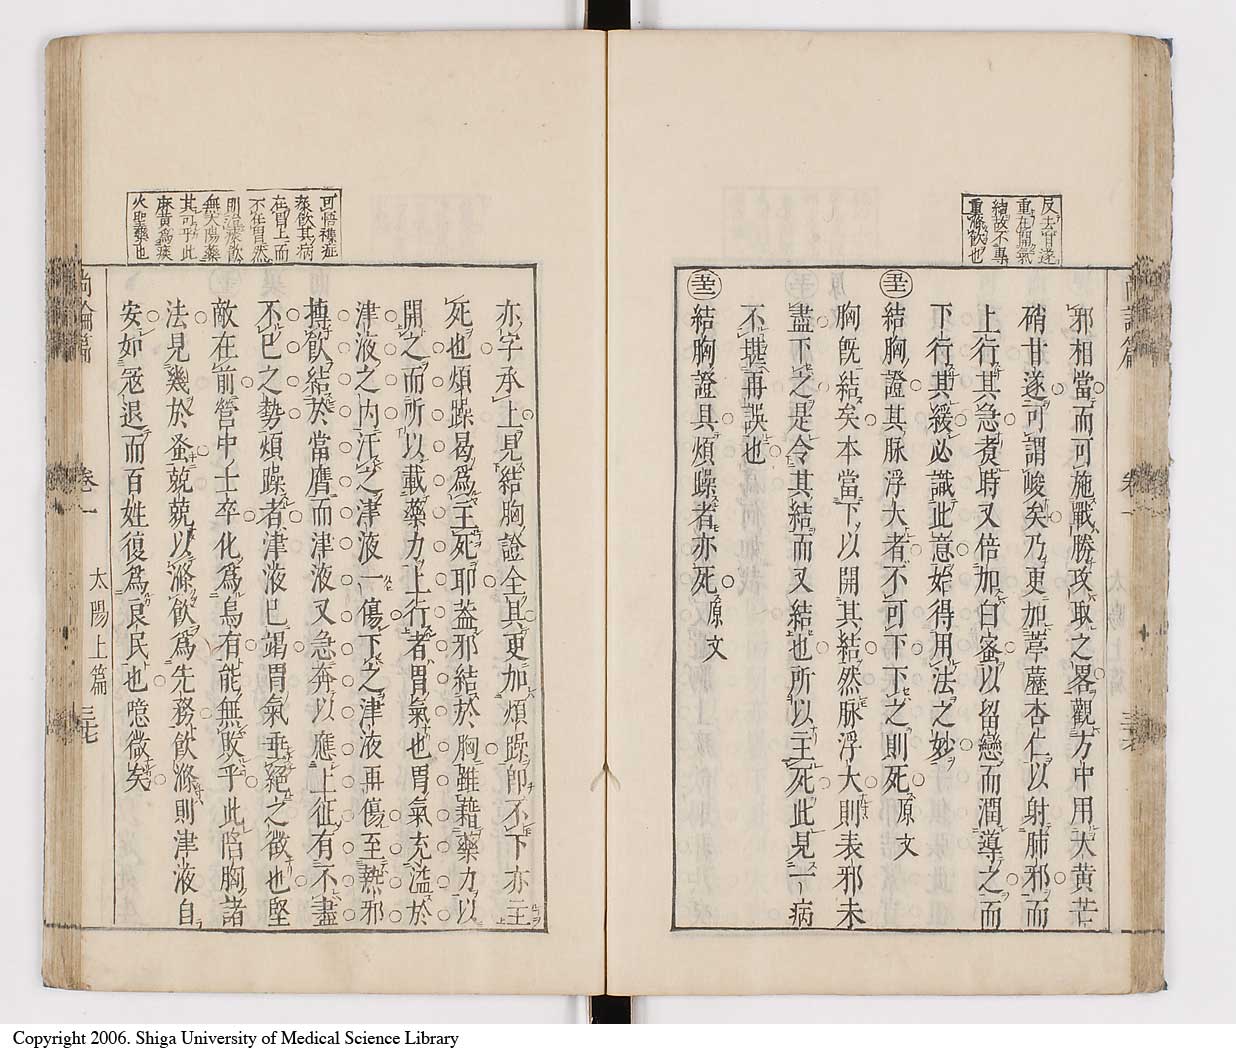 反去甘遂
重在痛氣
結故不專
重滌飲也
邪相當而可施戰勝攻取之畧觀方中用大黃芒
硝甘遂可謂峻矣乃更加葶藶杏仁以射肺邪而
上行其急煮時又倍加白蜜以留戀而潤導之而
下行其緩必識此意始得用法之妙
結胸證其脉浮大者不可下下之則死原文
胸旣結矣本當下以開其結然脉浮大則表邪未
盡下之是令其結而又結也所以主死此見一病
不堪再誤也
結胸證具煩躁者亦死原文
可悟種症
痰飲其病
在胃上而
不在胃然
則治痰飲
無太陽藥
其可乎此
麻黃為痰
火聖藥也
亦字承上見結胸證全具更加煩躁卽不下亦主
死也煩躁曷爲主死耶葢邪結於胸雖藉藥力以
開之而所以載藥力上行者胃氣也胃氣充溢於
津液之內汗之津液一傷下之津液再傷至熱邪
搏飲結於當膺而津液又急奔以應上征有不盡
不已之勢煩躁者津液已竭胃氣垂絕之徵也堅
敵在前營中士卒化爲烏有能無敗乎此陷胸諸
法見幾於蚤兢兢以滌飲爲先務飲滌則津液自
安如寇退而百姓復爲良民也噫微矣
尚論篇
卷一
太陽上篇
三七
Copyright 2006. Shiga University of Medical Science Library